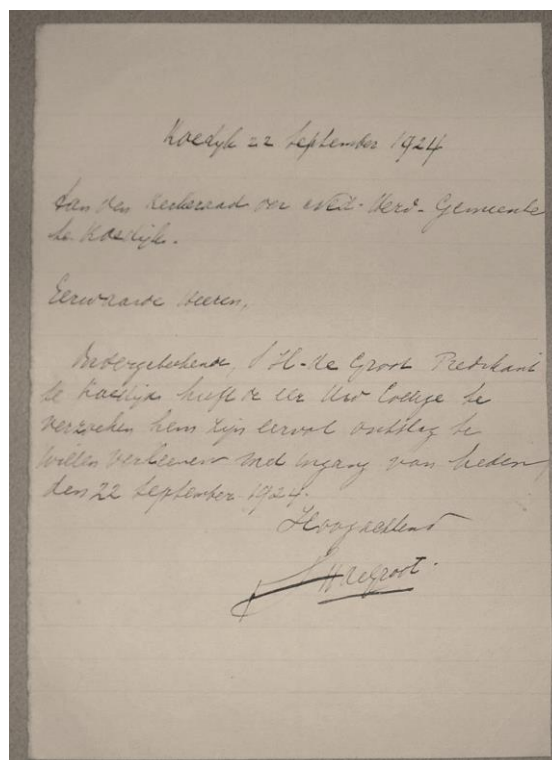 Koedyk 22 September 1924
Aan den Kerkeraad der Ned-Herv-Gemeente
te Koedijk.
Eerwaarde Heeren,
Ondergeteekende, S H-de Groot Predikant
te Koedijk heeft de eer Uw College te
verzoeken hem zijn eervol ontslag te
willen verleenen met ingang van heden,
den 22 September 1924.
Hoogachtend
S H de Groot.